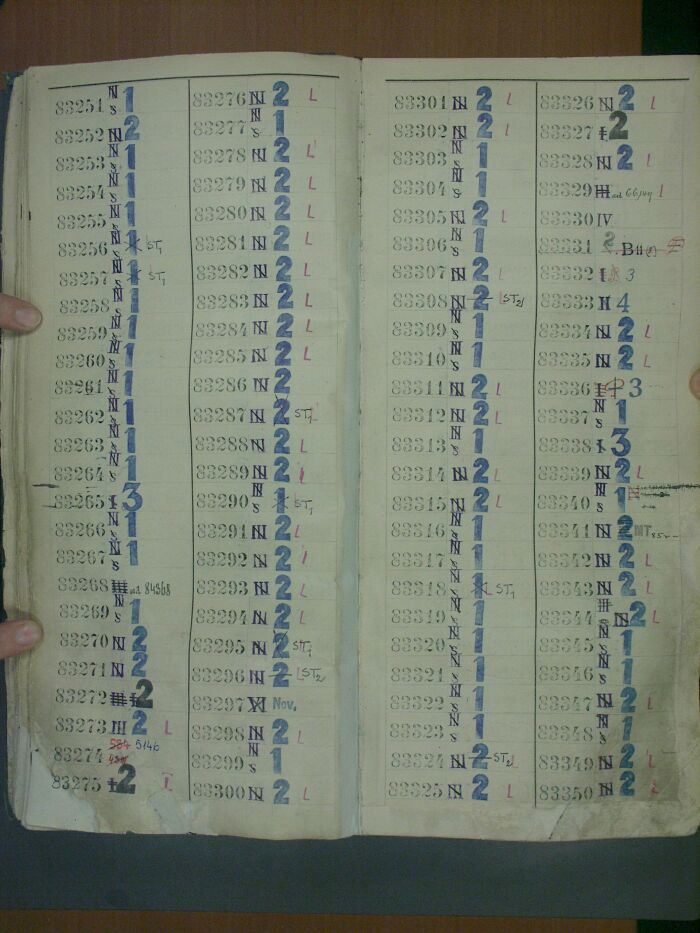 83251 N S 1
83252 N 2
83253 N S 1
83254 N S 1
83255 N S 1
83256 N S 1 ST1
83257 N S 1 ST1
83258 N S 1
83259 N S 1
83260 N S 1
83261 N S 1
83262 N S 1
83263 N S 1
83264 N S 1
83265 I 3
83266 N S 1
83267 N S 1
83268 84368
83269 N S 1
83270 N 2
83271 N 2
83272 2
83273 2 L
83274 5146
83275 2 L
83276 N 2 L
83277 N S 1
83278 N 2 L
83279 N 2 L
83280 N 2 L
83281 N 2 L
83282 N 2 L
83283 N 2 L
83284 N 2 L
83285 N 2 L
83286 N 2
83287 N 2 ST1
83288 N 2 L
83289 N 2 L
83290 N S 1 ST1
83291 N 2 L
83292 N 2 L
83293 N 2 L
83294 N 2 L
83295 N 2 ST1
83296 N 2 L ST2
83297 XI Nov.
83298 N 2 L
83299 N S 1
83300 N 2 L
83301 N 2 L
83302 N 2 L
83303 N S 1
83304 N S 1
83305 N 2 L
83306 N S 1
83307 N 2 L
83308 N 2 L ST2
83309 N S 1
83310 N S 1
83311 N 2 L
83312 N 2 L
83313 N S 1
83314 N 2 L
83315 N 2 L
83316 N S 1
83317 N S 1
83318 N S 1 L ST1
83319 N S 1
83320 N S 1
83321 N S 1
83322 N S 1
83323 N S 1
83324 N 2 ST2
83325 N 2 L
83326 N 2 L
83327 I 2
83328 N 2 L
83329 L
83330 IV
83331 2 B11
83332 I 3
83333 II 4
83334 N 2 L
83335 N 2 L
83336 3
83337 N S 1
83338 I 3
83339 N 2 L
83340 N S 1
83341 N 2 MT
83342 N 2 L
83343 N 2 L
83344 N 2 L
83345 N S 1
83346 N S 1
83347 N 2 L
83348 N S 1
83349 N 2 L
83350 N 2 L